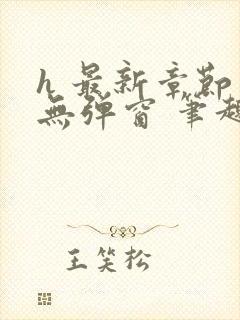 h 最新章節
無彈窗 筆趣
王笑松